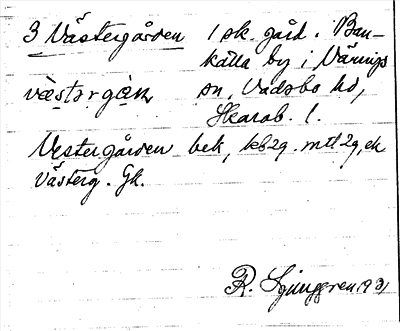 3 Västergården 1 sk. gård i Ban-
källa by i Värings
væstərgɑ̀ɳ sn, Vadsbo hd,
Skarab. l.
Vestergården bek, kb2g. mtl 2g, ek
Västerg. Gk.
R. Ljunggren 1931